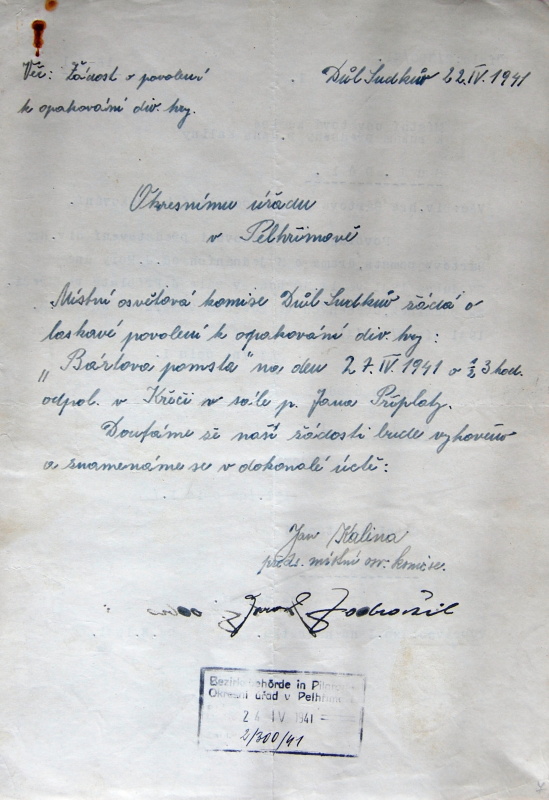 Věc: Žádost o povolení
k opakování div. hry.
Důl Sudkův 22.IV.1941
Okresnímu úřadu
v Pelhřimově
Místní osvětová komise Důl Sudkův žádá o
laskavé povolení k opakování div. hry:
„Bártova pomsta" na den 27.IV.1941 o ½ 3 hod.
odpol. v Křeči v sále p. Jana Příplaty.
Doufáme že naší žádosti bude vyhověno
a znamenáme se v dokonalé úctě:
Jan Kalina
před. místní osv. komise.
Bezirksbehörde in
Okresní úřad v Pelhřimově
24 IV 1941
2/300/41